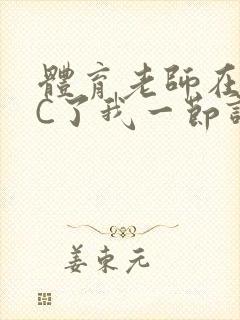 體育老師在
C了我一節
姜東元